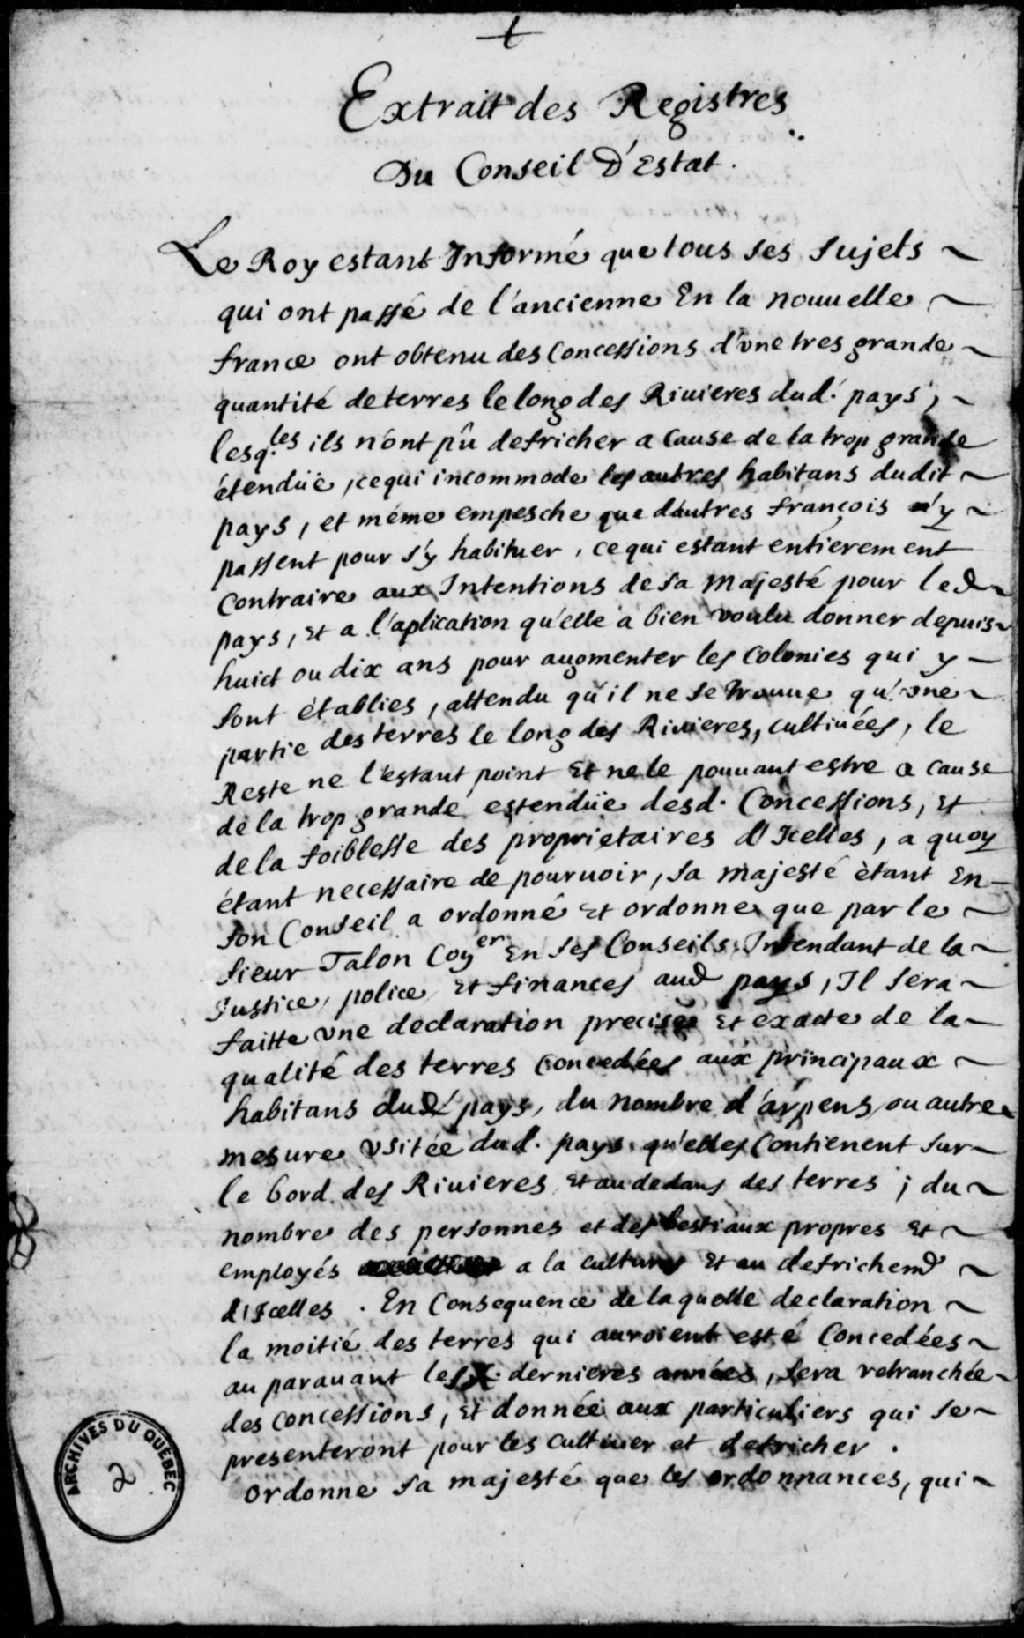 Extrait des Registres
Du Conseil d'Estat.
Le Roy estant Informé que tous ses sujets ~
qui ont passé de l'ancienne En la nouuelle ~
france ont obtenu des Concessions d'vne tres grande ~
quantité de terres le long des Riuieres dud. pays, ~
lesq.les ils n'ont pû defricher a Cause de la trop grande
étendüe, ce qui incommode les autres habitans dudit ~
pays, et méme empesche que d'autres françois n'y ~
passent pour s'y habituer, ce qui estant entierement
Contraire aux Intentions de sa majesté pour led ~
pays, Et a l'aplication qu'elle a bien voulu donner depuis ~
huict ou dix ans pour augmenter les Colonies qui y ~
sont établies, attendu qu'il ne se trouue qu'vne ~
partie des terres le long des Riuieres, cultiuées, le
Reste ne l'estant point Et ne le pouuant estre a cause
de la trop grande estendüe desd. Concessions, Et
de la foiblesse des proprietaires d'Icelles, a quoy
étant necessaire de pouruoir, sa majesté étant En ~
son Conseil a ordonné Et ordonne que par le ~
sieur Talon Coy.er En ses Conseils Intendant de la ~
Justice, police Et finances aud pays, Il sera ~
faitte vne declaration precise Et exacte de la ~
qualité des terres Concedées aux principaux ~
habitans dud pays, du nombre d'arpens ou autre ~
mesure vsitée dud. pays qu'elles Contienent sur ~
le bord des Riuieres Et au dedans des terres ; du ~
nombre des personnes et des bestiaux propres Et ~
employés a la culture Et au defrichem.d ~
d'Icelles. En Consequence de laquelle declaration ~
la moitié des terres qui auroient esté Concedées ~
au parauant les X. dernieres années, sera retranchée ~
des concessions, Et donnée aux particuliers qui se ~
presenteront pour les cultiuer et defricher.
ordonne sa majesté que les ordonnances, qui ~
ARCHIVES DU QUÉBEC
2